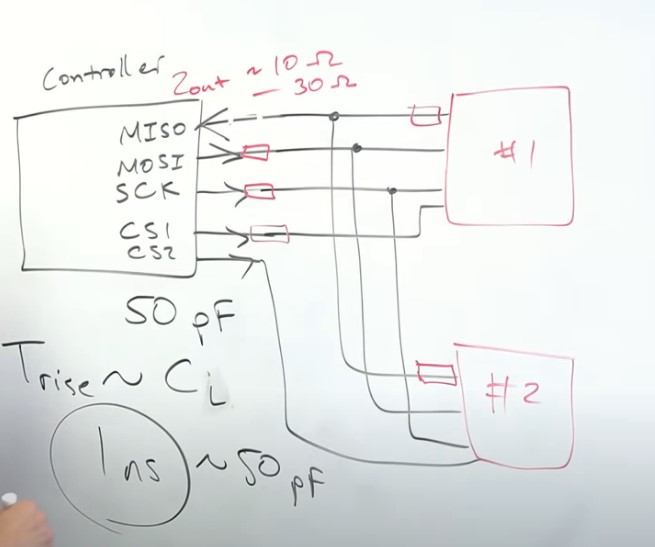 Controller
Zout ~ 10 Ω
— 30 Ω
MISO
MOSI
SCK
CS1
CS2
#1
50 pF
Trise ~ CL
1ns ~ 50 pF
#2